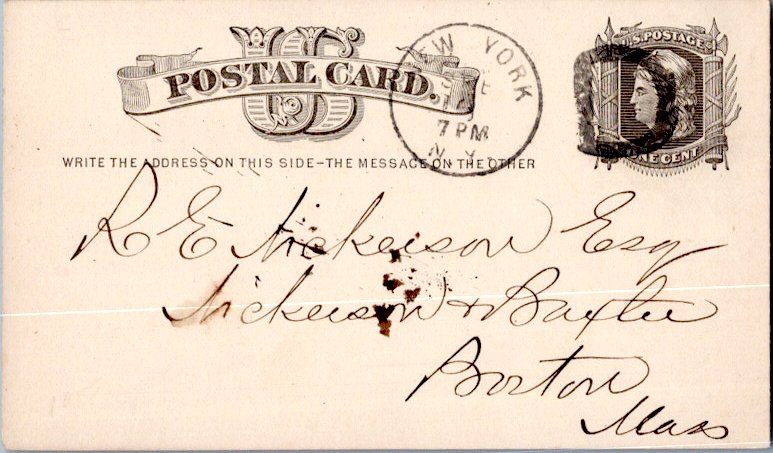 US
POSTAL CARD.
NEW YORK
7 PM
N.Y.
U.S. POSTAGE
ONE CENT
WRITE THE ADDRESS ON THIS SIDE-THE MESSAGE ON THE OTHER
R E Nickerson Esq
Nickerson & Baxter
Boston
Mass